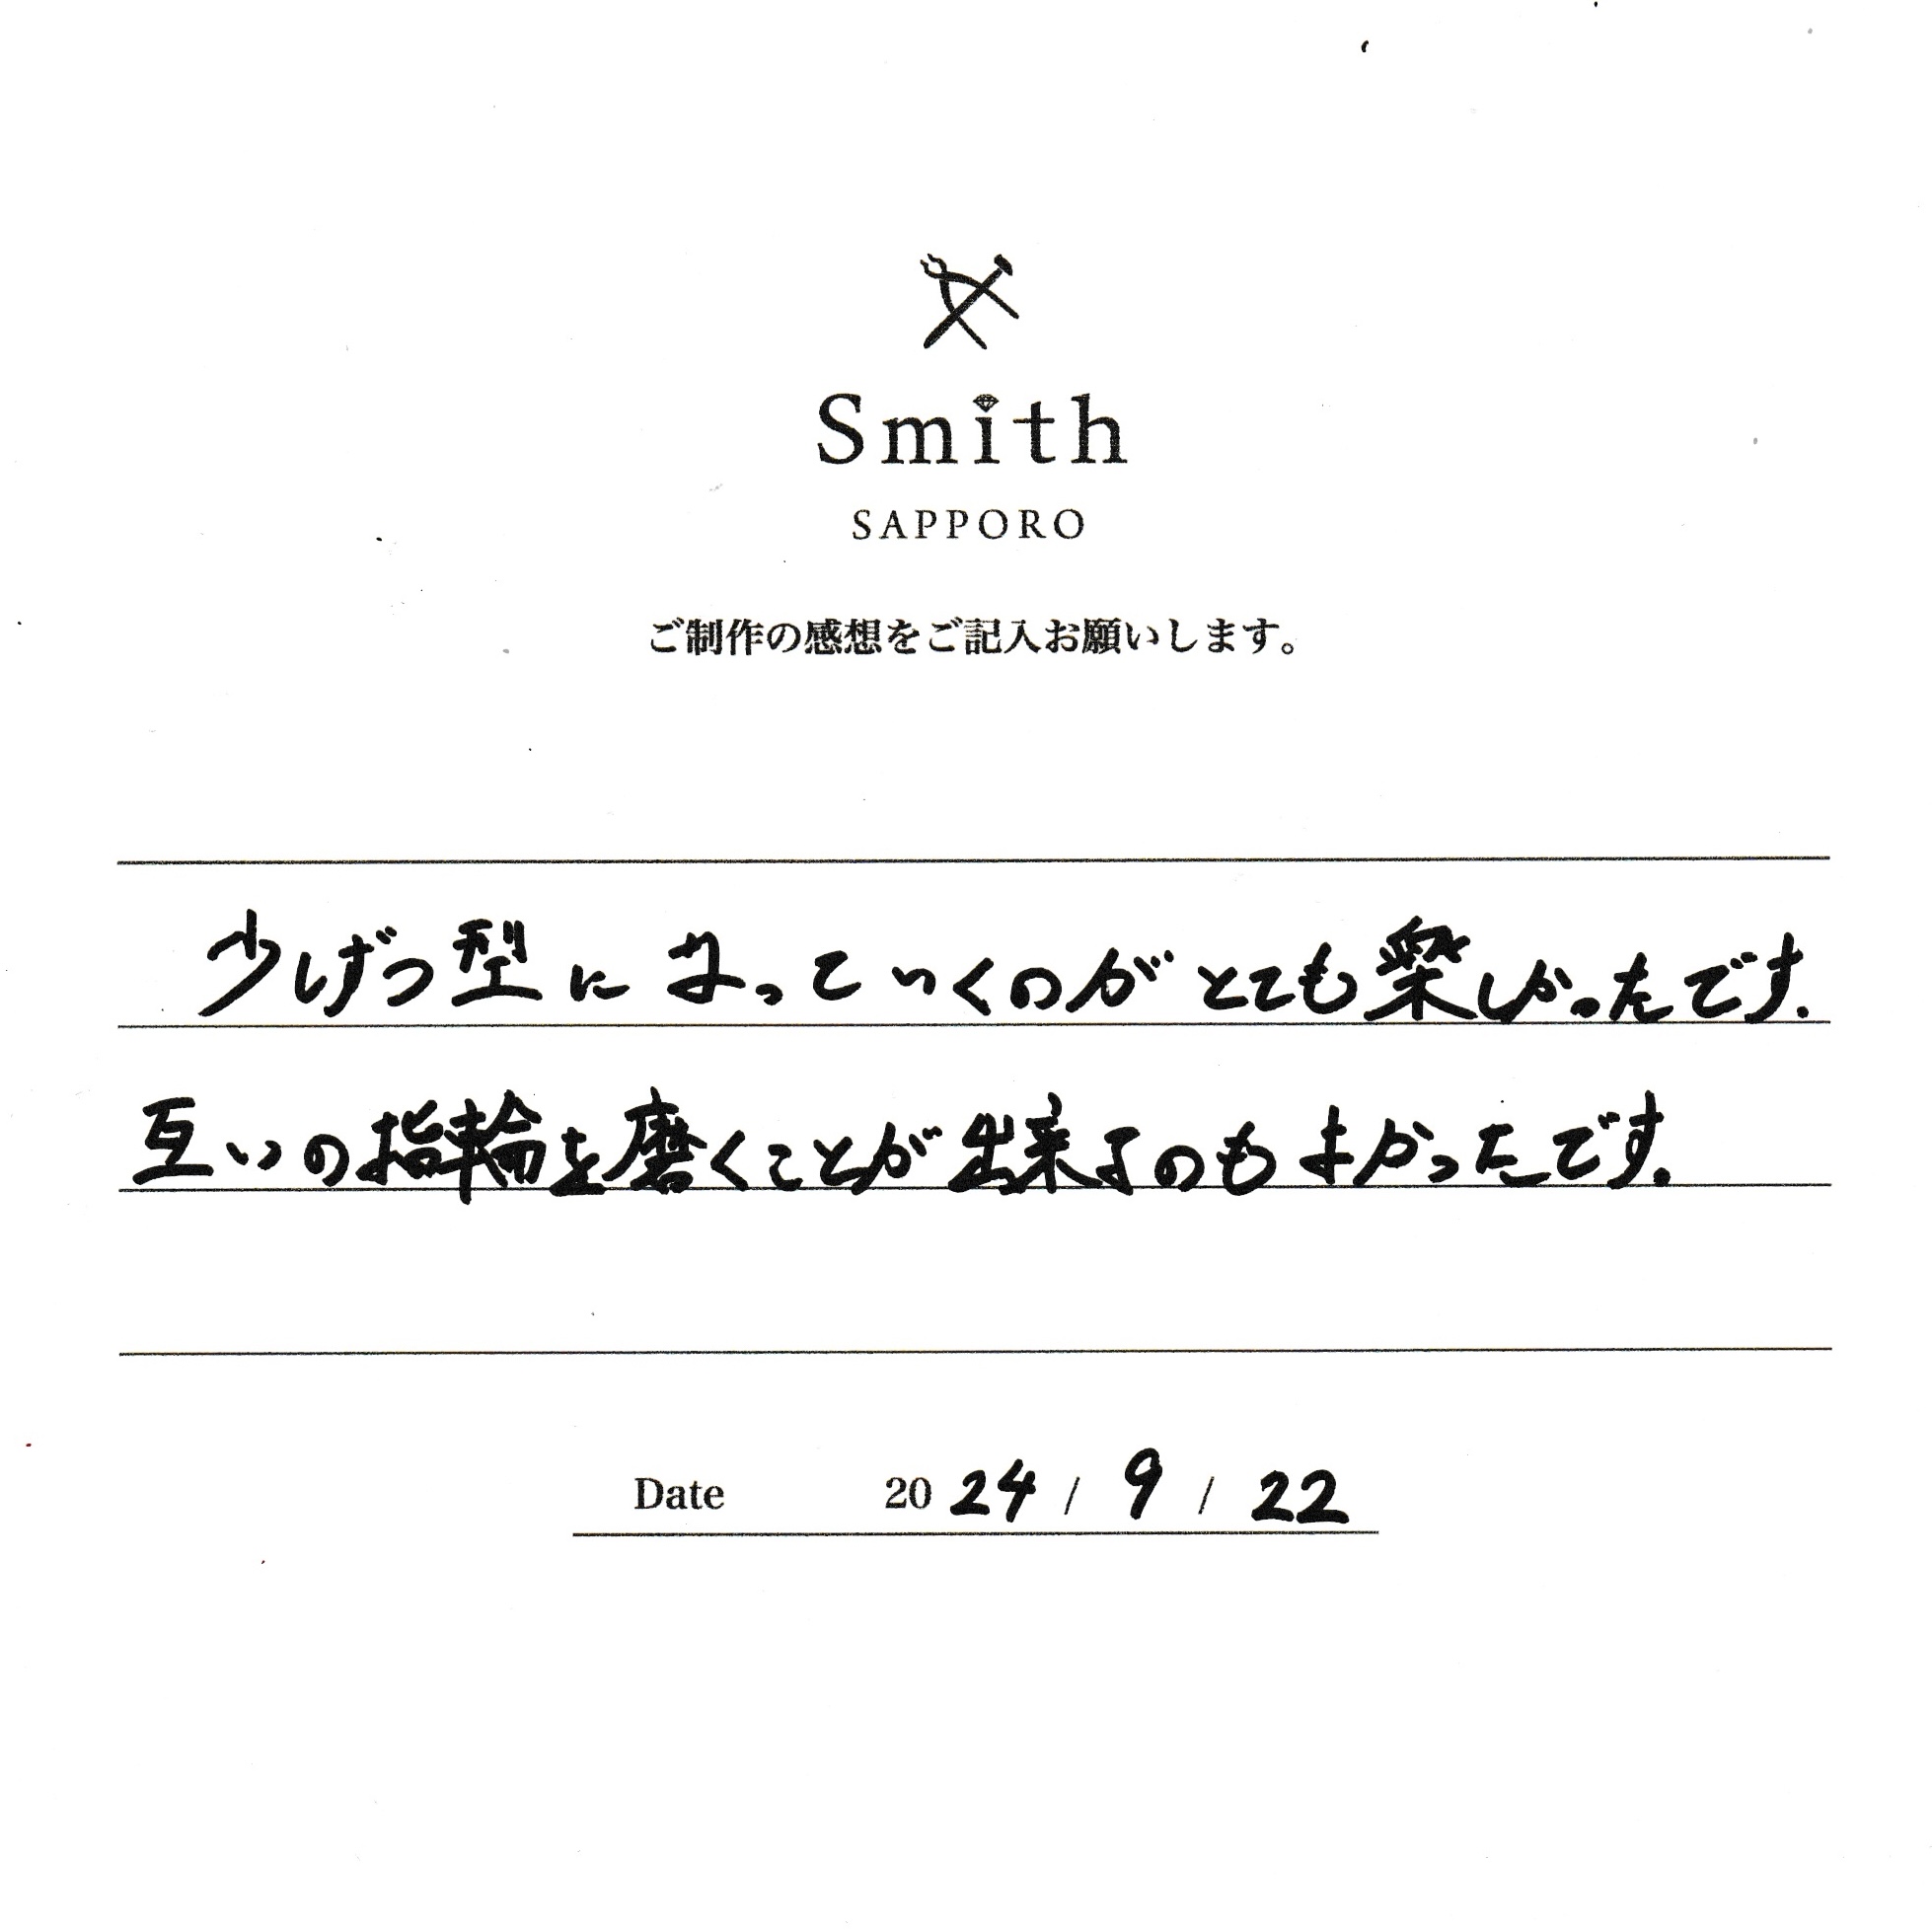 Smith
SAPPORO
ご制作の感想をご記入お願いします。
少しずつ型になっていくのがとても楽しかったです.
互いの指輪を磨くことが出来るのもよかったです.
Date 2024 / 9 / 22